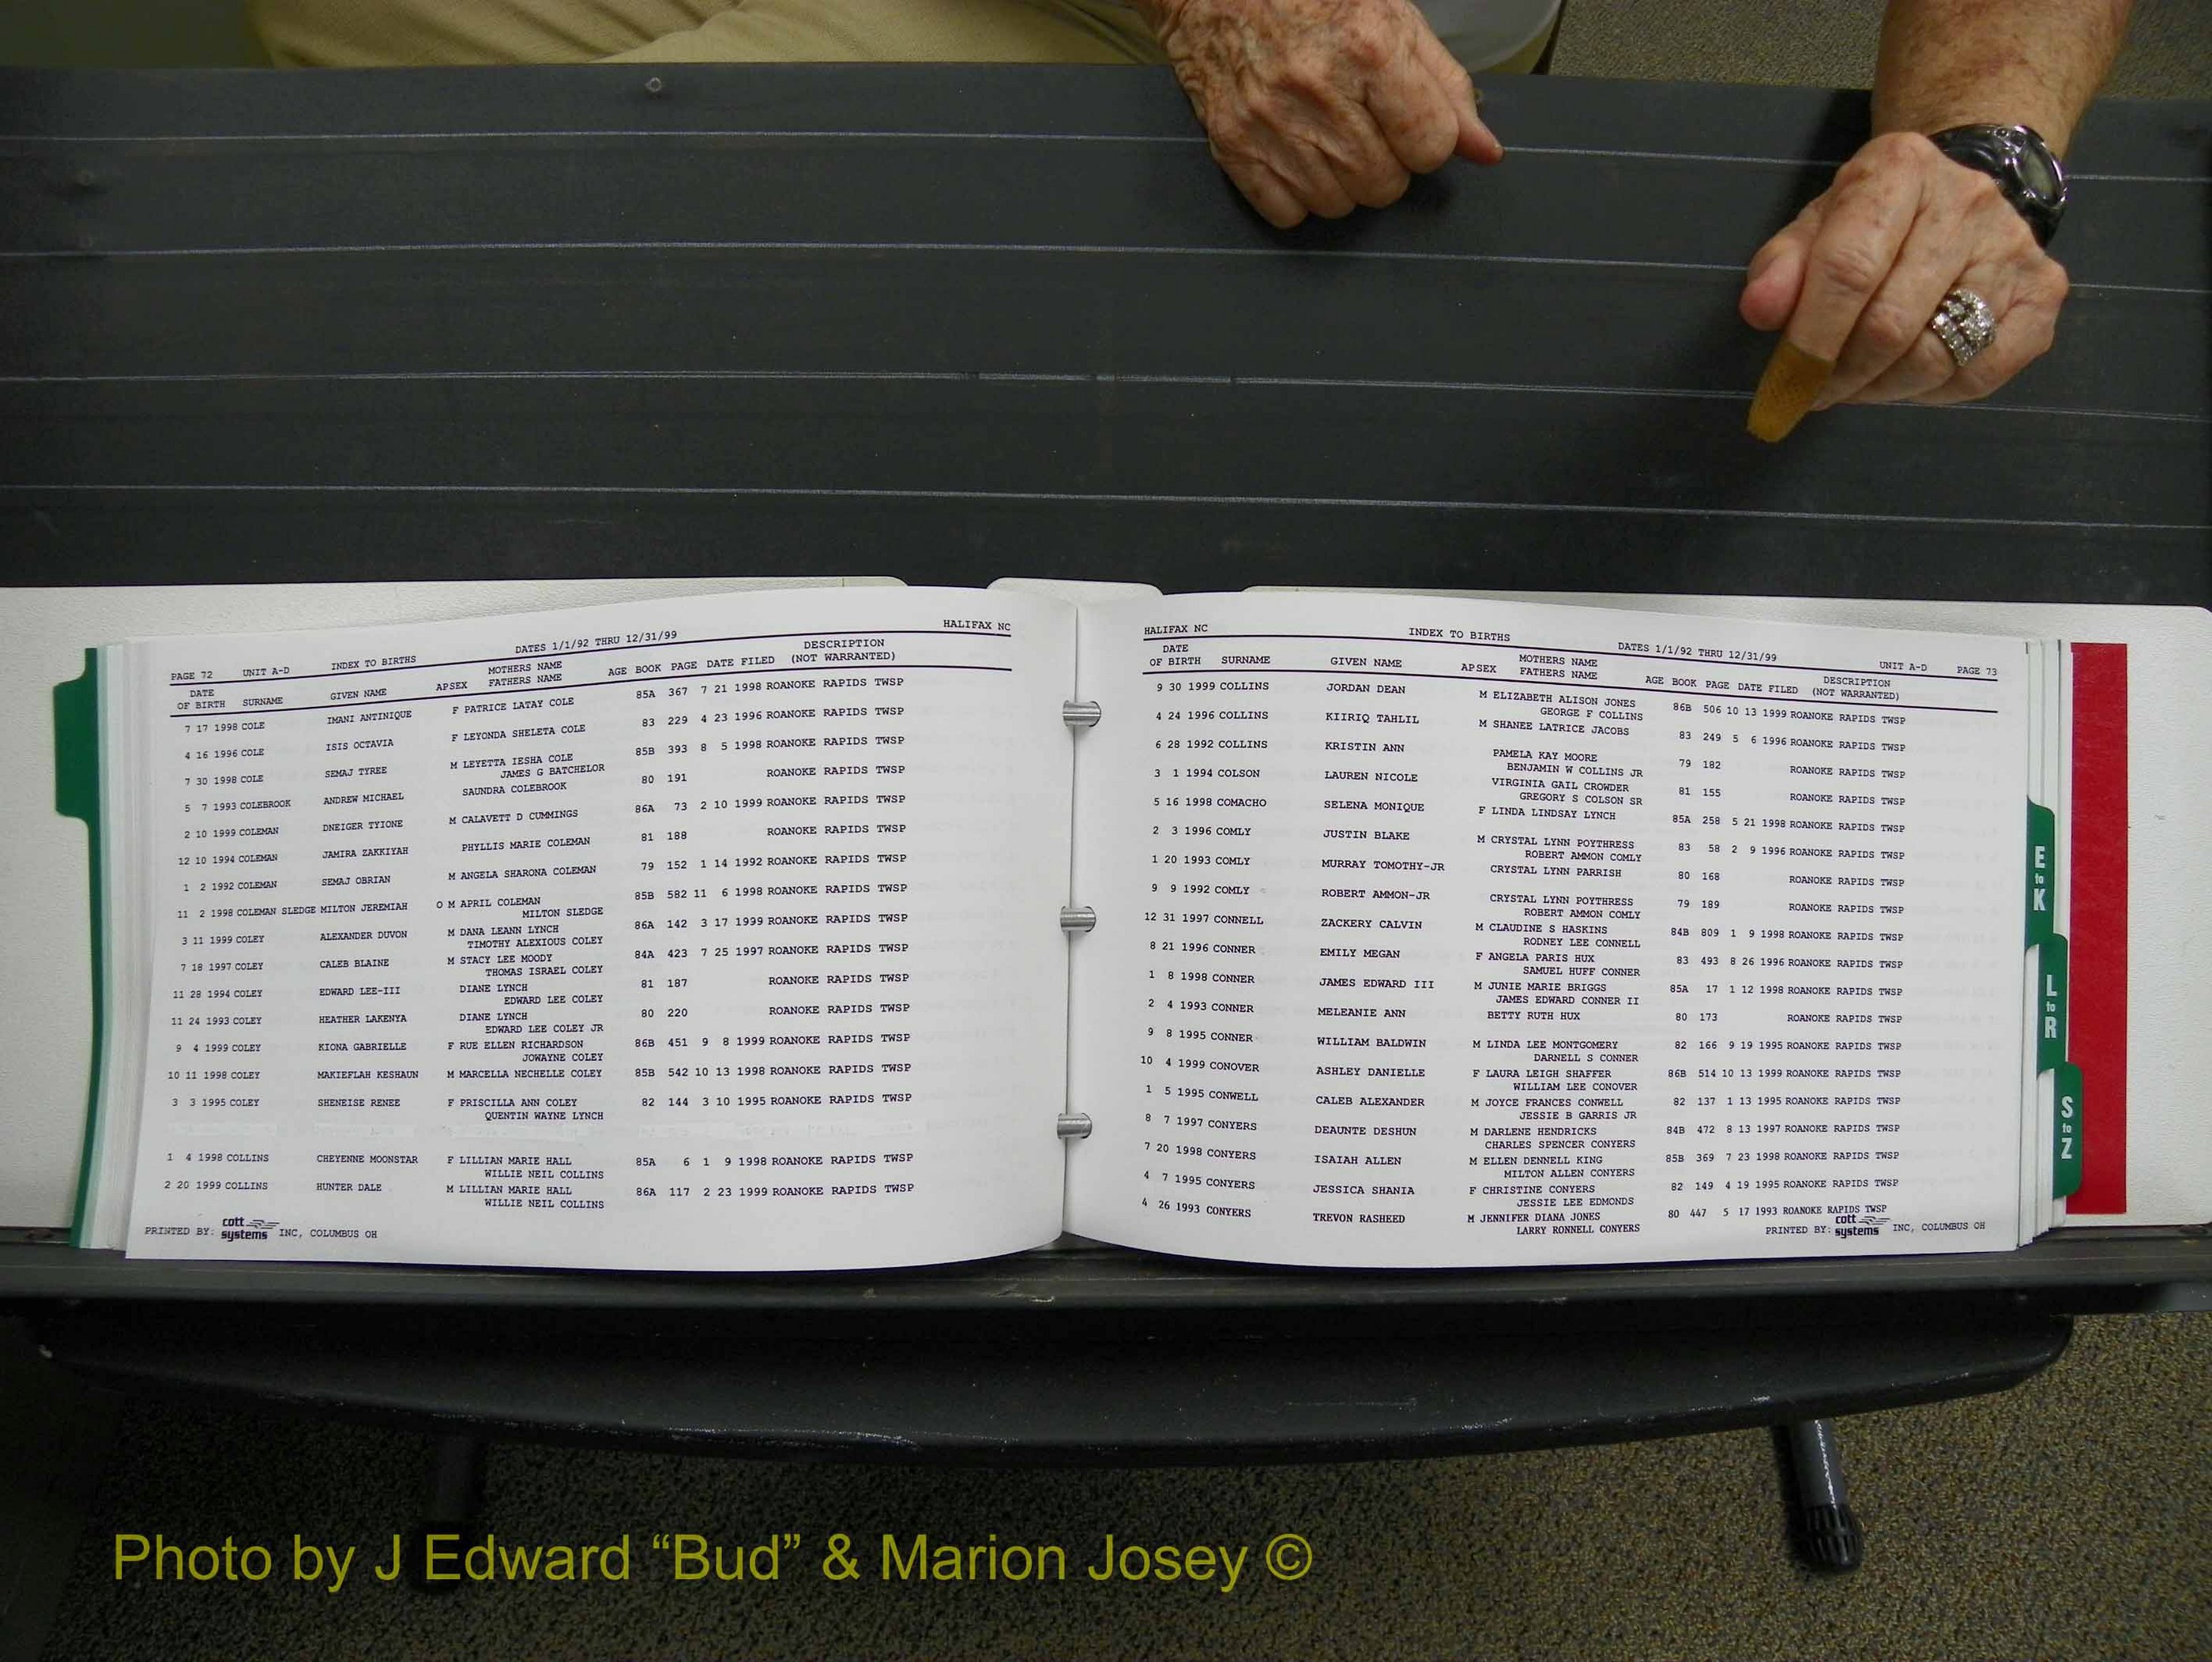 HALIFAX NC
PAGE 72 UNIT A-D INDEX TO BIRTHS DATES 1/1/92 THRU 12/31/99 DESCRIPTION
DATE OF BIRTH SURNAME GIVEN NAME AP SEX MOTHERS NAME FATHERS NAME AGE BOOK PAGE DATE FILED (NOT WARRANTED)
7 17 1998 COLE IMANI ANTINIQUE F PATRICE LATAY COLE 85A 367 7 21 1998 ROANOKE RAPIDS TWSP
4 16 1996 COLE ISIS OCTAVIA F LEYONDA SHELETA COLE 83 229 4 23 1996 ROANOKE RAPIDS TWSP
7 30 1998 COLE SEMAJ TYREE M LEYETTA IESHA COLE 85B 393 8 5 1998 ROANOKE RAPIDS TWSP
JAMES G BATCHELOR
5 7 1993 COLEBROOK ANDREW MICHAEL SAUNDRA COLEBROOK 80 191 ROANOKE RAPIDS TWSP
2 10 1999 COLEMAN DNEIGER TYIONE M CALAVETT D CUMMINGS 86A 73 2 10 1999 ROANOKE RAPIDS TWSP
12 10 1994 COLEMAN JAMIRA ZAKKIYAH PHYLLIS MARIE COLEMAN 81 188 ROANOKE RAPIDS TWSP
1 2 1992 COLEMAN SEMAJ OBRIAN M ANGELA SHARONA COLEMAN 79 152 1 14 1992 ROANOKE RAPIDS TWSP
11 2 1998 COLEMAN SLEDGE MILTON JEREMIAH O M APRIL COLEMAN 85B 582 11 6 1998 ROANOKE RAPIDS TWSP
MILTON SLEDGE
3 11 1999 COLEY ALEXANDER DUVON M DANA LEANN LYNCH 86A 142 3 17 1999 ROANOKE RAPIDS TWSP
TIMOTHY ALEXIOUS COLEY
7 18 1997 COLEY CALEB BLAINE M STACY LEE MOODY 84A 423 7 25 1997 ROANOKE RAPIDS TWSP
THOMAS ISRAEL COLEY
11 28 1994 COLEY EDWARD LEE-III DIANE LYNCH 81 187 ROANOKE RAPIDS TWSP
EDWARD LEE COLEY
11 24 1993 COLEY HEATHER LAKENYA DIANE LYNCH 80 220 ROANOKE RAPIDS TWSP
EDWARD LEE COLEY JR
9 4 1999 COLEY KIONA GABRIELLE F RUE ELLEN RICHARDSON 86B 451 9 8 1999 ROANOKE RAPIDS TWSP
JOWAYNE COLEY
10 11 1998 COLEY MAKIEFLAH KESHAUN M MARCELLA NECHELLE COLEY 85B 542 10 13 1998 ROANOKE RAPIDS TWSP
3 3 1995 COLEY SHENEISE RENEE F PRISCILLA ANN COLEY 82 144 3 10 1995 ROANOKE RAPIDS TWSP
QUENTIN WAYNE LYNCH
1 4 1998 COLLINS CHEYENNE MOONSTAR F LILLIAN MARIE HALL 85A 6 1 9 1998 ROANOKE RAPIDS TWSP
WILLIE NEIL COLLINS
2 20 1999 COLLINS HUNTER DALE M LILLIAN MARIE HALL 86A 117 2 23 1999 ROANOKE RAPIDS TWSP
WILLIE NEIL COLLINS
PRINTED BY: cott systems INC, COLUMBUS OH
HALIFAX NC INDEX TO BIRTHS DATES 1/1/92 THRU 12/31/99 UNIT A-D PAGE 73
DATE OF BIRTH SURNAME GIVEN NAME AP SEX MOTHERS NAME FATHERS NAME AGE BOOK PAGE DATE FILED DESCRIPTION (NOT WARRANTED)
9 30 1999 COLLINS JORDAN DEAN M ELIZABETH ALISON JONES 86B 506 10 13 1999 ROANOKE RAPIDS TWSP
GEORGE F COLLINS
4 24 1996 COLLINS KIIRIQ TAHLIL M SHANEE LATRICE JACOBS 83 249 5 6 1996 ROANOKE RAPIDS TWSP
6 28 1992 COLLINS KRISTIN ANN PAMELA KAY MOORE 79 182 ROANOKE RAPIDS TWSP
BENJAMIN W COLLINS JR
3 1 1994 COLSON LAUREN NICOLE VIRGINIA GAIL CROWDER 81 155 ROANOKE RAPIDS TWSP
GREGORY S COLSON SR
5 16 1998 COMACHO SELENA MONIQUE F LINDA LINDSAY LYNCH 85A 258 5 21 1998 ROANOKE RAPIDS TWSP
2 3 1996 COMLY JUSTIN BLAKE M CRYSTAL LYNN POYTHRESS 83 58 2 9 1996 ROANOKE RAPIDS TWSP
ROBERT AMMON COMLY
1 20 1993 COMLY MURRAY TOMOTHY-JR CRYSTAL LYNN PARRISH 80 168 ROANOKE RAPIDS TWSP
9 9 1992 COMLY ROBERT AMMON-JR CRYSTAL LYNN POYTHRESS 79 189 ROANOKE RAPIDS TWSP
ROBERT AMMON COMLY
12 31 1997 CONNELL ZACKERY CALVIN M CLAUDINE S HASKINS 84B 809 1 9 1998 ROANOKE RAPIDS TWSP
RODNEY LEE CONNELL
8 21 1996 CONNER EMILY MEGAN F ANGELA PARIS HUX 83 493 8 26 1996 ROANOKE RAPIDS TWSP
SAMUEL HUFF CONNER
1 8 1998 CONNER JAMES EDWARD III M JUNIE MARIE BRIGGS 85A 17 1 12 1998 ROANOKE RAPIDS TWSP
JAMES EDWARD CONNER II
2 4 1993 CONNER MELEANIE ANN BETTY RUTH HUX 80 173 ROANOKE RAPIDS TWSP
9 8 1995 CONNER WILLIAM BALDWIN M LINDA LEE MONTGOMERY 82 166 9 19 1995 ROANOKE RAPIDS TWSP
DARNELL S CONNER
10 4 1999 CONOVER ASHLEY DANIELLE F LAURA LEIGH SHAFFER 86B 514 10 13 1999 ROANOKE RAPIDS TWSP
WILLIAM LEE CONOVER
1 5 1995 CONWELL CALEB ALEXANDER M JOYCE FRANCES CONWELL 82 137 1 13 1995 ROANOKE RAPIDS TWSP
JESSIE B GARRIS JR
8 7 1997 CONYERS DEAUNTE DESHUN M DARLENE HENDRICKS 84B 472 8 13 1997 ROANOKE RAPIDS TWSP
CHARLES SPENCER CONYERS
7 20 1998 CONYERS ISAIAH ALLEN M ELLEN DENNELL KING 85B 369 7 23 1998 ROANOKE RAPIDS TWSP
MILTON ALLEN CONYERS
4 7 1995 CONYERS JESSICA SHANIA F CHRISTINE CONYERS 82 149 4 19 1995 ROANOKE RAPIDS TWSP
JESSIE LEE EDMONDS
4 26 1993 CONYERS TREVON RASHEED M JENNIFER DIANA JONES 80 447 5 17 1993 ROANOKE RAPIDS TWSP
LARRY RONNELL CONYERS
PRINTED BY: cott systems INC, COLUMBUS OH
E to K
L to R
S to Z
Photo by J Edward “Bud” & Marion Josey ©